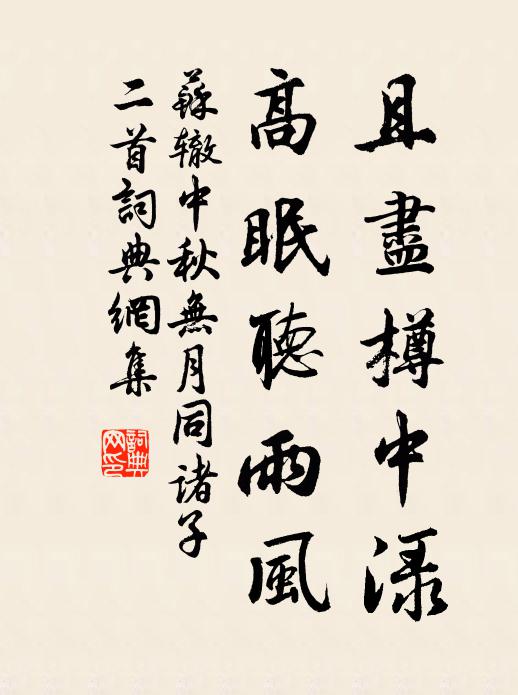 且盡樽中渌
高眠聽雨風
蘇辙中秋無月同诸子
二首詞典網集
詞典网印